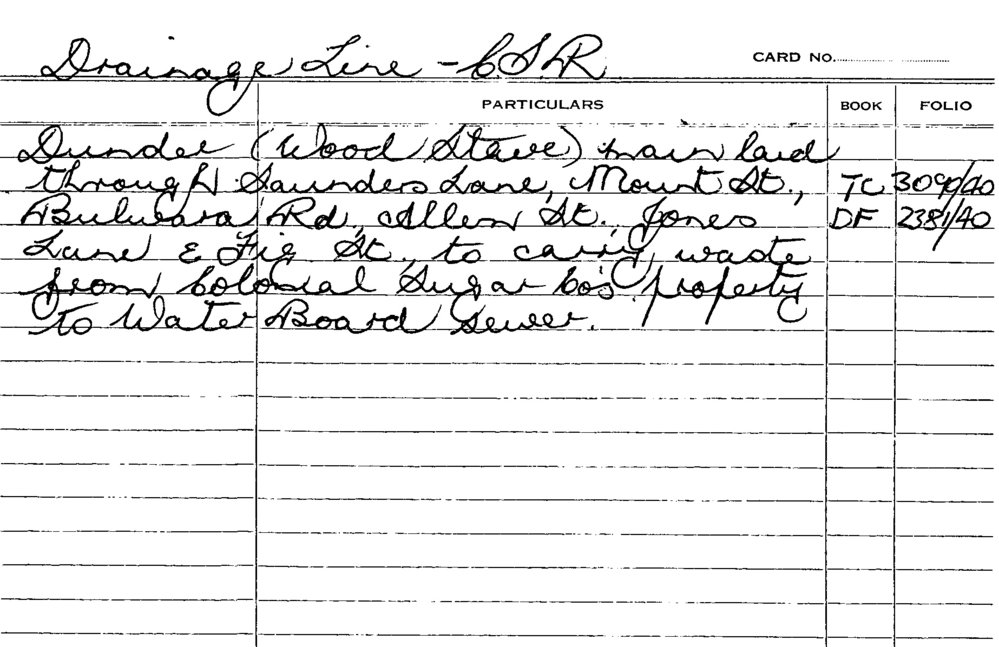 Drainage Line - CSR
CARD No.
PARTICULARS BOOK FOLIO
Dunder (Wood Stave) main laid
through Saunders Lane, Mount St., TC 3090/40
Bulwara Rd, Allen St., Jones DF 2381/40
Lane & Fig St., to carry waste
from Colonial Sugar Co's property
to Water Board Sewer.